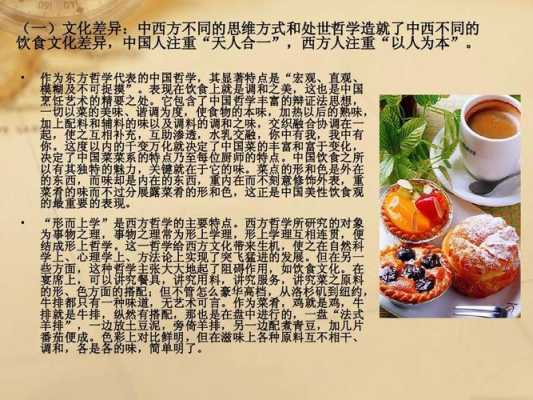 （一）文化差异：中西方不同的思维方式和处世哲学造就了中西不同的
饮食文化差异，中国人注重“天人合一”，西方人注重“以人为本”。
• 作为东方哲学代表的中国哲学，其显著特点是“宏观、直观、
模糊及不可捉摸”。表现在饮食上就是调和之美，这也是中国
烹饪艺术的精要之处。它包含了中国哲学丰富的辩证法思想，
一切以菜的美味、谐调为度，使食物的本味，加热以后的熟味，
加上配料和辅料的味以及调料的调和之味，交织融合协调在一
起，使之互相补充，互助渗透，水乳交融，你中有我，我中有
你。这度以内的千变万化就决定了中国菜的丰富和富于变化，
决定了中国菜菜系的特点乃至每位厨师的特点。中国饮食之所
以有其独特的魅力，关键就在于它的味。菜点的形和色是外在
的东西，而味却是内在的东西，重内在而不刻意修饰外表，重
菜肴的味而不过分展露菜肴的形和色，这正是中国美性饮食观
的最重要的表现。
• “形而上学”是西方哲学的主要特点。西方哲学所研究的对象
为事物之理，事物之理常为形上学理，形上学理互相连贯，便
结成形上哲学。这一哲学给西方文化带来生机，使之在自然科
学上、心理学上、方法论上实现了突飞猛进的发展。但在另一
些方面，这种哲学主张大大地起了阻碍作用，如饮食文化。在
宴席上，可以讲究餐具，讲究用料，讲究服务，讲究菜之原料
的形、色方面的搭配；但不管怎么豪华高档，从洛杉矶到纽约，
牛排都只有一种味道，无艺术可言。作为菜肴，鸡就是鸡，牛
排就是牛排，纵然有搭配，那也是在盘中进行的，一盘“法式
羊排”，一边放土豆泥，旁倚羊排，另一边配煮青豆，加几片
番茄便成。色彩上对比鲜明，但在滋味上各种原料互不相干、
调和，各是各的味，简单明了。